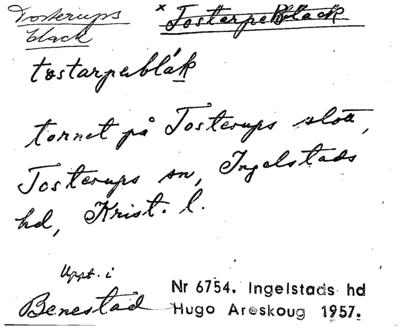 Tosterups black
× Tostarpeblack
tostarpeblåk
tornet på Tosterups slott,
Tosterups sn, Ingelstads
hd, Krist. l.
Uppt. i
Benestad
Nr 6754. Ingelstads hd
Hugo Areskoug 1957.